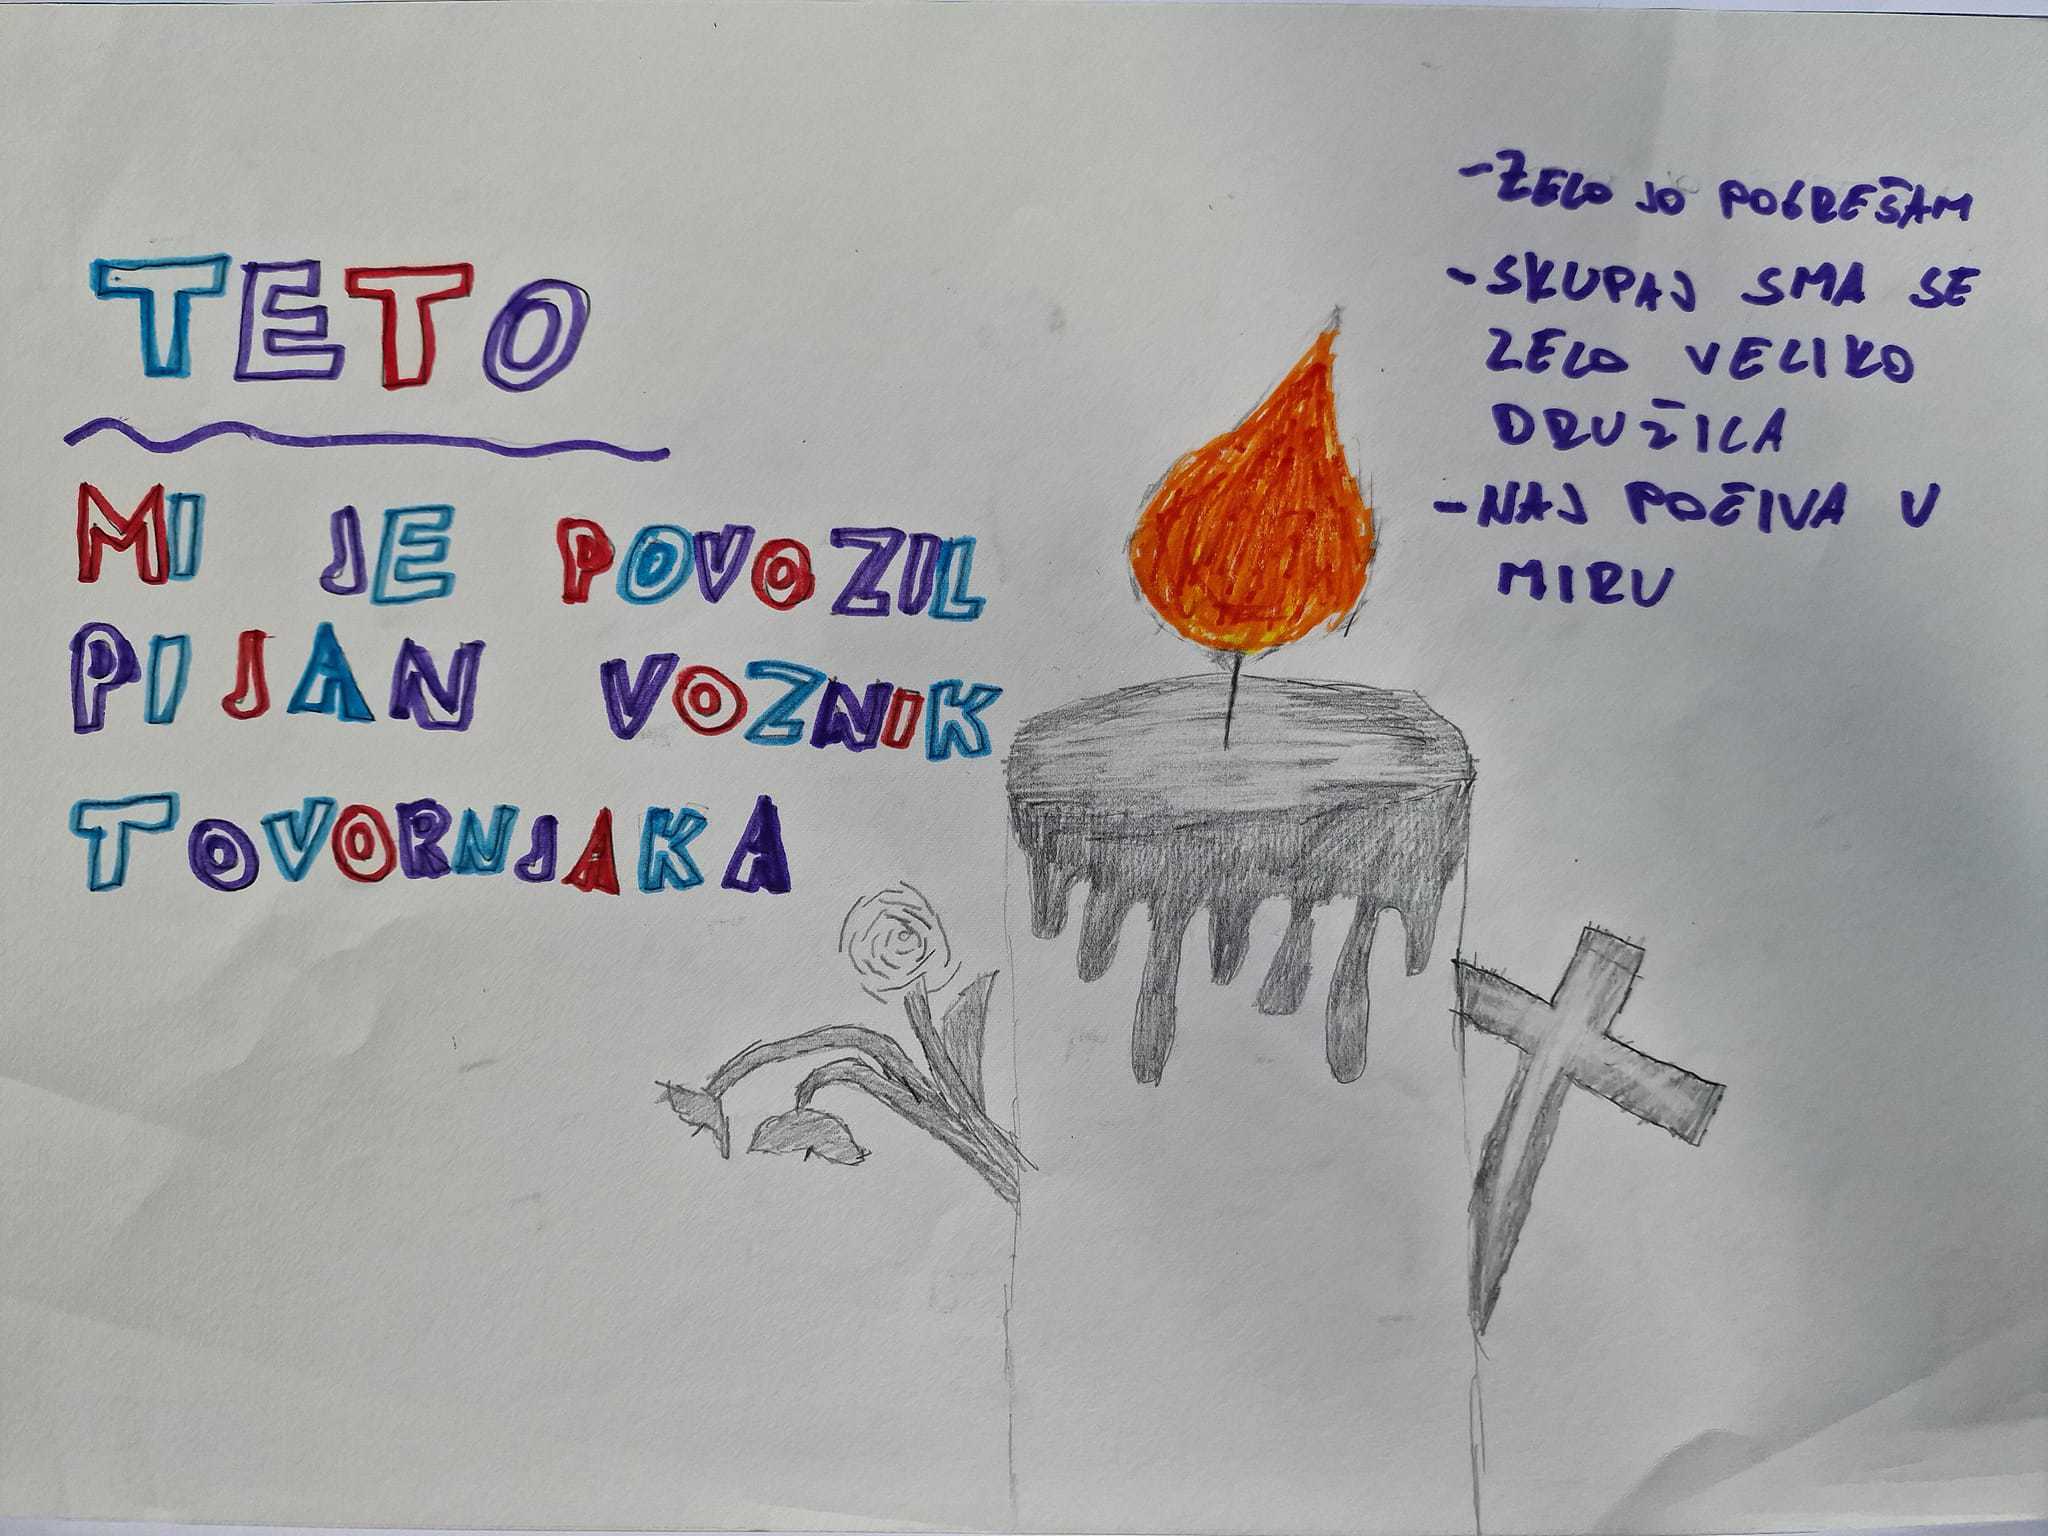 TETO
MI JE POVOZIL
PIJAN VOZNIK
TOVORNJAKA
-ZELO JO POGREŠAM
-SKUPAJ SMA SE
ZELO VELIKO
DRUŽILA
-NAJ POČIVA V
MIRU